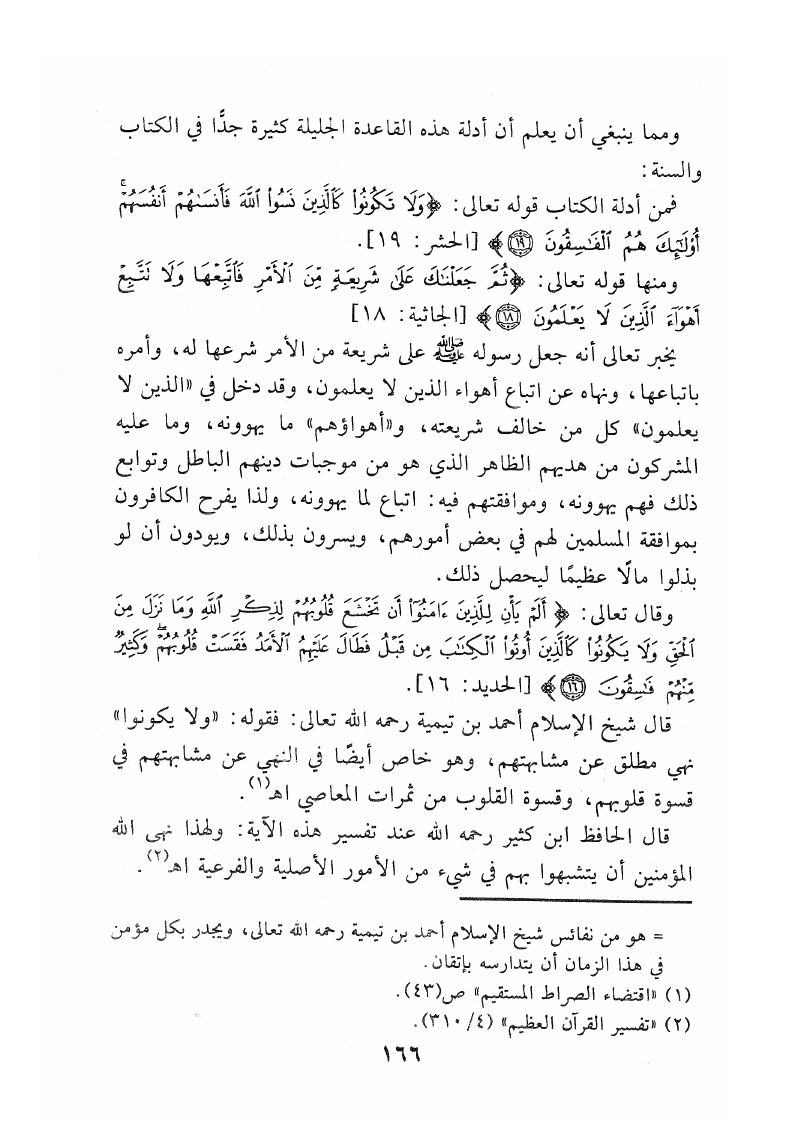 ومما ينبغي أن يعلم أن أدلة هذه القاعدة الجليلة كثيرة جدًّا في الكتاب
والسنة:
فمن أدلة الكتاب قوله تعالى: ﴿وَلَا تَكُونُوا۟ كَٱلَّذِينَ نَسُوا۟ ٱللَّهَ فَأَنسَىٰهُمْ أَنفُسَهُمْ ۚ
أُو۟لَٰٓئِكَ هُمُ ٱلْفَٰسِقُونَ ۝١٩﴾ [الحشر: ١٩].
ومنها قوله تعالى: ﴿ثُمَّ جَعَلْنَٰكَ عَلَىٰ شَرِيعَةٍ مِّنَ ٱلْأَمْرِ فَٱتَّبِعْهَا وَلَا تَتَّبِعْ
أَهْوَآءَ ٱلَّذِينَ لَا يَعْلَمُونَ ۝١٨﴾ [الجاثية: ١٨]
يخبر تعالى أنه جعل رسوله ﷺ على شريعة من الأمر شرعها له، وأمره
باتباعها، ونهاه عن اتباع أهواء الذين لا يعلمون، وقد دخل في «الذين لا
يعلمون» كل من خالف شريعته، و«أهواؤهم» ما يهوونه، وما عليه
المشركون من هديهم الظاهر الذي هو من موجبات دينهم الباطل وتوابع
ذلك فهم يهوونه، وموافقتهم فيه: اتباع لما يهوونه، ولذا يفرح الكافرون
بموافقة المسلمين لهم في بعض أمورهم، ويسرون بذلك، ويودون أن لو
بذلوا مالًا عظيمًا ليحصل ذلك.
وقال تعالى: ﴿أَلَمْ يَأْنِ لِلَّذِينَ ءَامَنُوٓا۟ أَن تَخْشَعَ قُلُوبُهُمْ لِذِكْرِ ٱللَّهِ وَمَا نَزَلَ مِنَ
ٱلْحَقِّ وَلَا يَكُونُوا۟ كَٱلَّذِينَ أُوتُوا۟ ٱلْكِتَٰبَ مِن قَبْلُ فَطَالَ عَلَيْهِمُ ٱلْأَمَدُ فَقَسَتْ قُلُوبُهُمْ ۖ وَكَثِيرٌ
مِّنْهُمْ فَٰسِقُونَ ۝١٦﴾ [الحديد: ١٦].
قال شيخ الإسلام أحمد بن تيمية رحمه الله تعالى: فقوله: «ولا يكونوا»
نهي مطلق عن مشابهتهم، وهو خاص أيضًا في النهي عن مشابهتهم في
قسوة قلوبهم، وقسوة القلوب من ثمرات المعاصي اهـ(١).
قال الحافظ ابن كثير رحمه الله عند تفسير هذه الآية: ولهذا نهى الله
المؤمنين أن يتشبهوا بهم في شيء من الأمور الأصلية والفرعية اهـ(٢).
= هو من نفائس شيخ الإسلام أحمد بن تيمية رحمه الله تعالى، ويجدر بكل مؤمن
في هذا الزمان أن يتدارسه بإتقان.
(١) «اقتضاء الصراط المستقيم» ص(٤٣).
(٢) «تفسير القرآن العظيم» (٤/٣١٠).
١٦٦